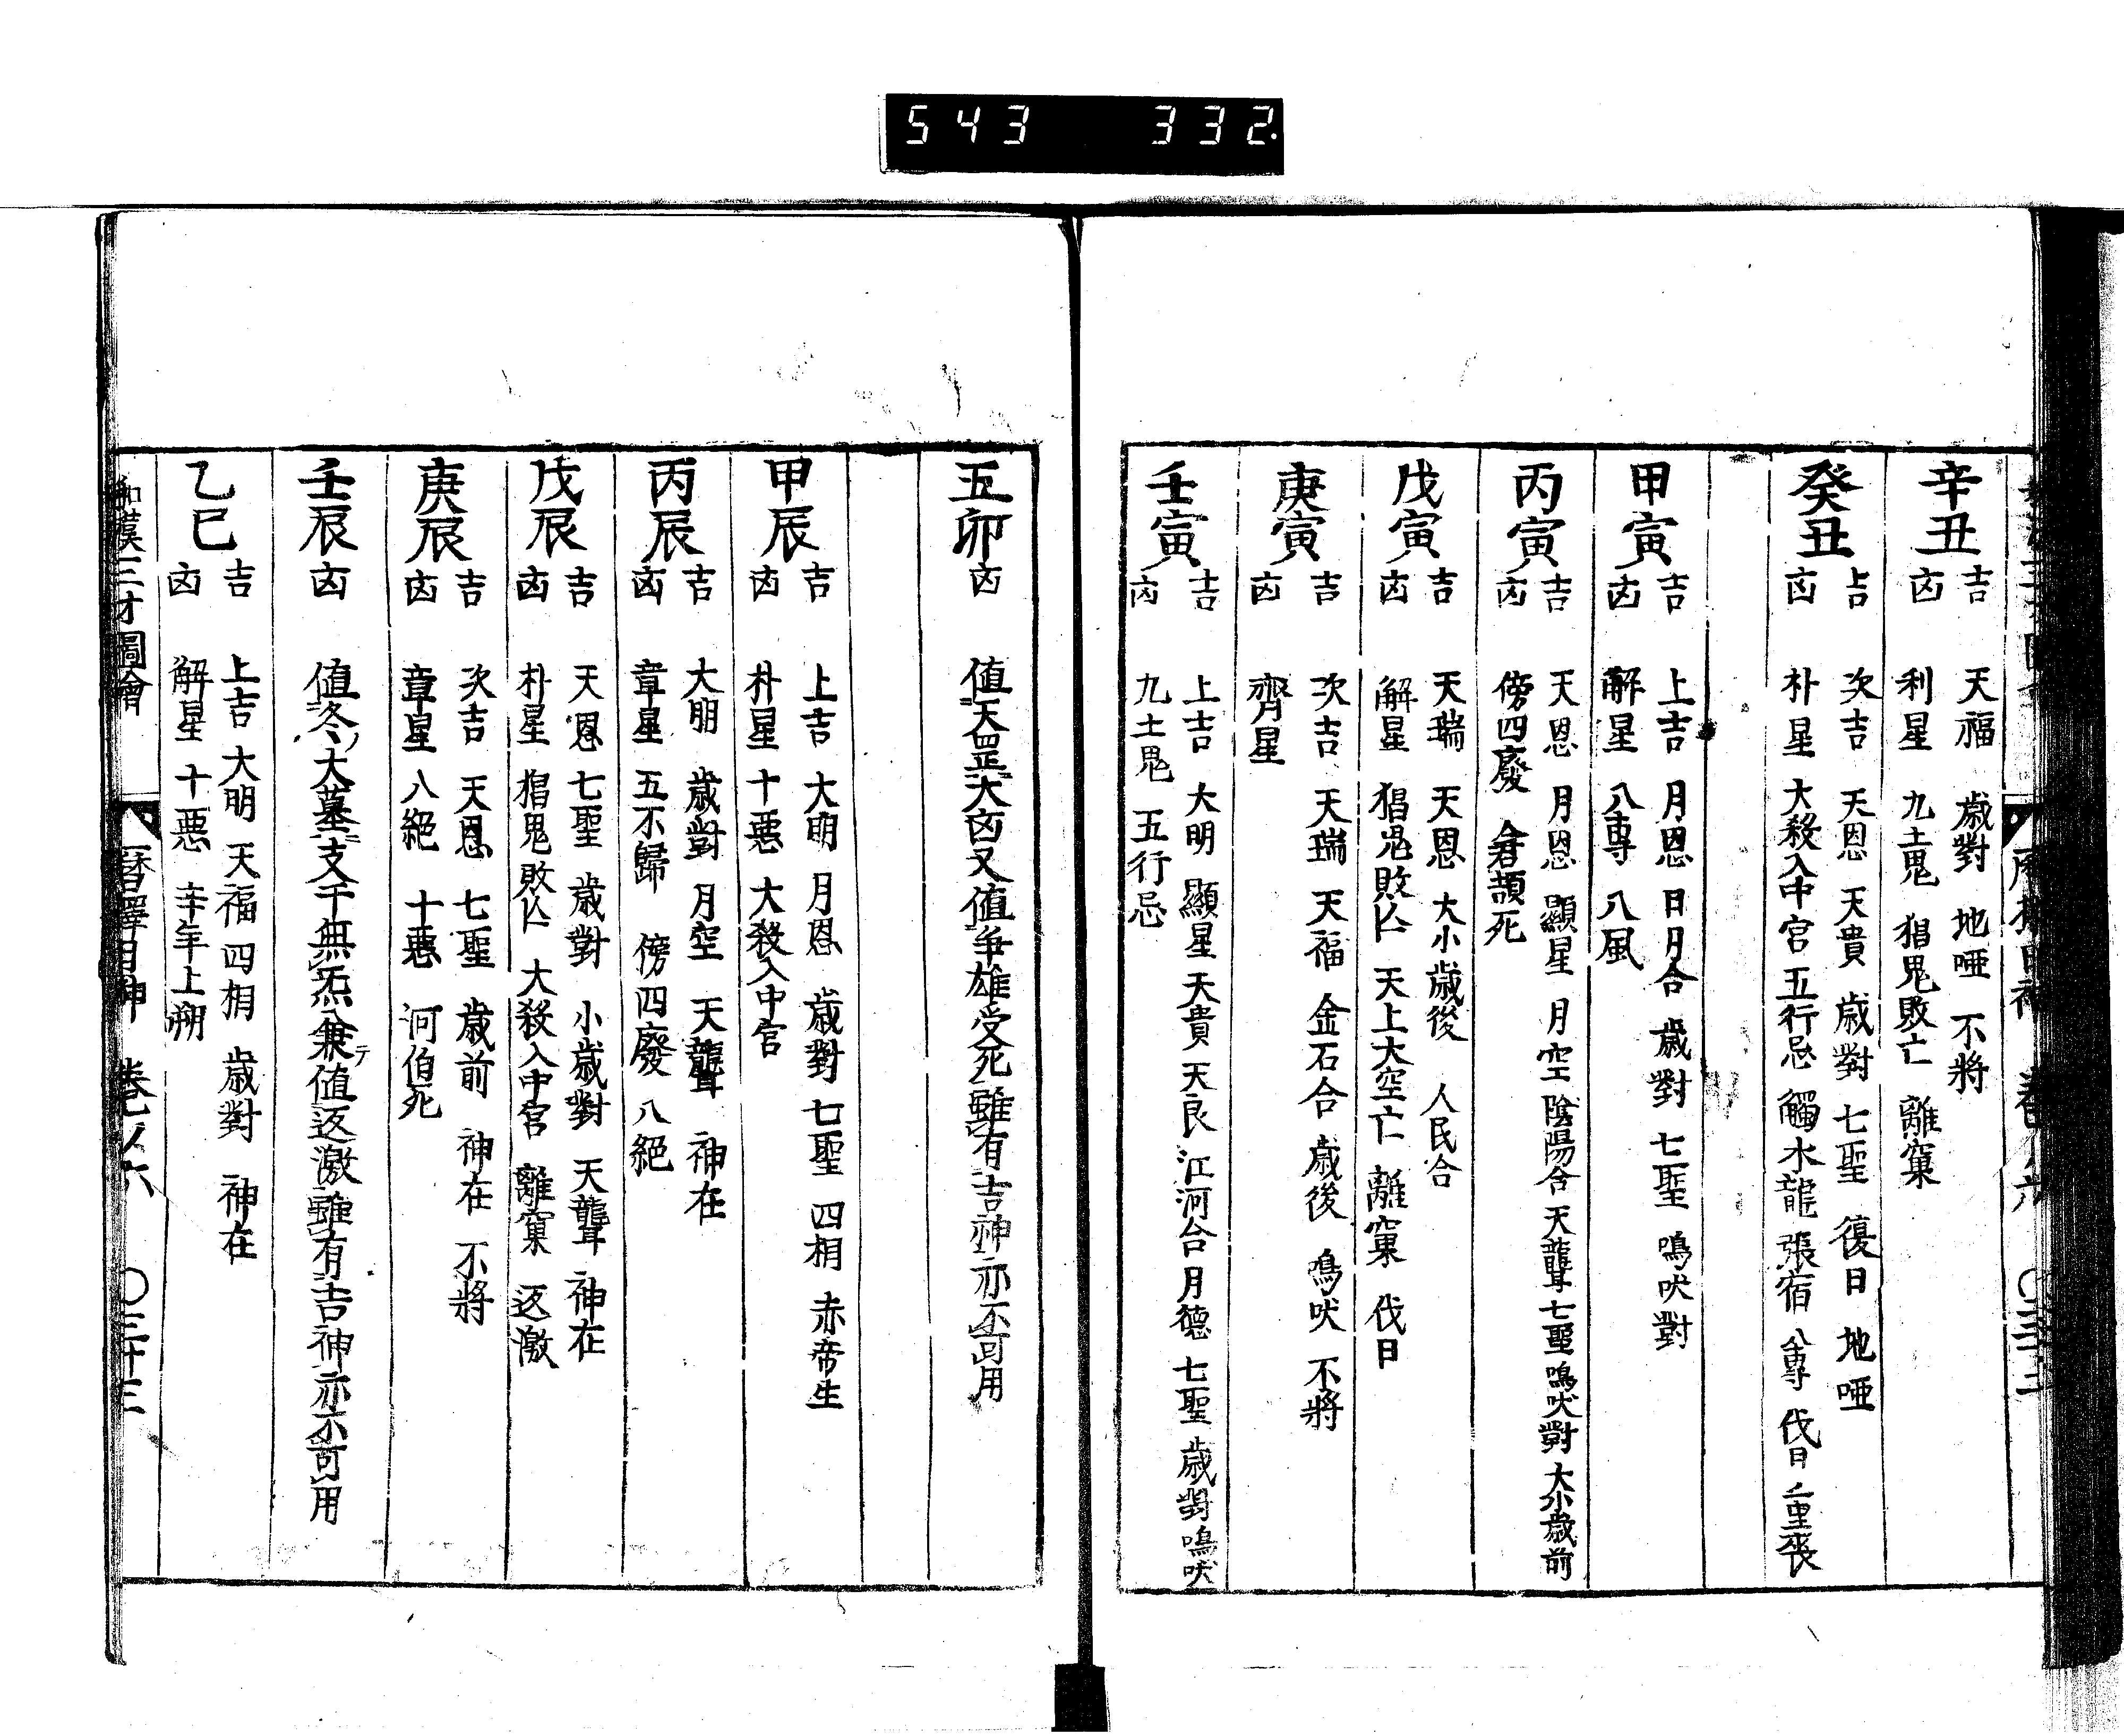 543 332.
辛丑
吉 天福 歳對 地啞 不將
凶 利星 九土鬼 猖鬼敗亡 離窠
癸丑
吉 次吉 天恩 天貴 歳對 七聖 復日 地啞
凶 朴星 大殺入中宮 五行忌 觸水龍 張宿 八專 伐日 重喪
甲寅
吉 上吉 月恩 日月合 歳對 七聖 鳴吠對
凶 解星 八専 八風
丙寅
吉 天恩 月恩 顯星 月空 陰陽合 天聾 七聖 鳴吠對 大小歳前
凶 傍四廢 倉頡死
戊寅
吉 天瑞 天恩 大小歳後 人民合
凶 解星 猖鬼敗亡 天上大空亡 離窠 伐日
庚寅
吉 次吉 天瑞 天福 金石合 歳後 鳴吠 不將
凶 齊星
壬寅
吉 上吉 大明 顯星 天貴 天良 江河合 月德 七聖 歳對 鳴吠
凶 九土鬼 五行忌
五卯
凶 値天罡大凶又値爭雄受死雖有吉神亦不可用
甲辰
吉 上吉 大明 月恩 歳對 七聖 四相 赤帝生
凶 朴星 十悪 大殺入中宮
丙辰
吉 大明 歳對 月空 天聾 神在
凶 章星 五不歸 傍四廢 八絕
戊辰
吉 天恩 七聖 歳對 小歳對 天聾 神在
凶 朴星 猖鬼敗亡 大殺入中宮 離窠 返激
庚辰
吉 次吉 天恩 七聖 歳前 神在 不將
凶 章星 八絕 十悪 河伯死
壬辰
凶 値冬ノ大墓支干無炁兼テ値返激雖有吉神亦不可用
乙巳
吉 上吉 大明 天福 四相 歳對 神在
凶 解星 十悪 辛年上朔
和漢三才圖會 暦擇日神 巻ノ六 〇三十三